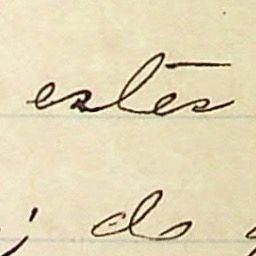 estes
; do